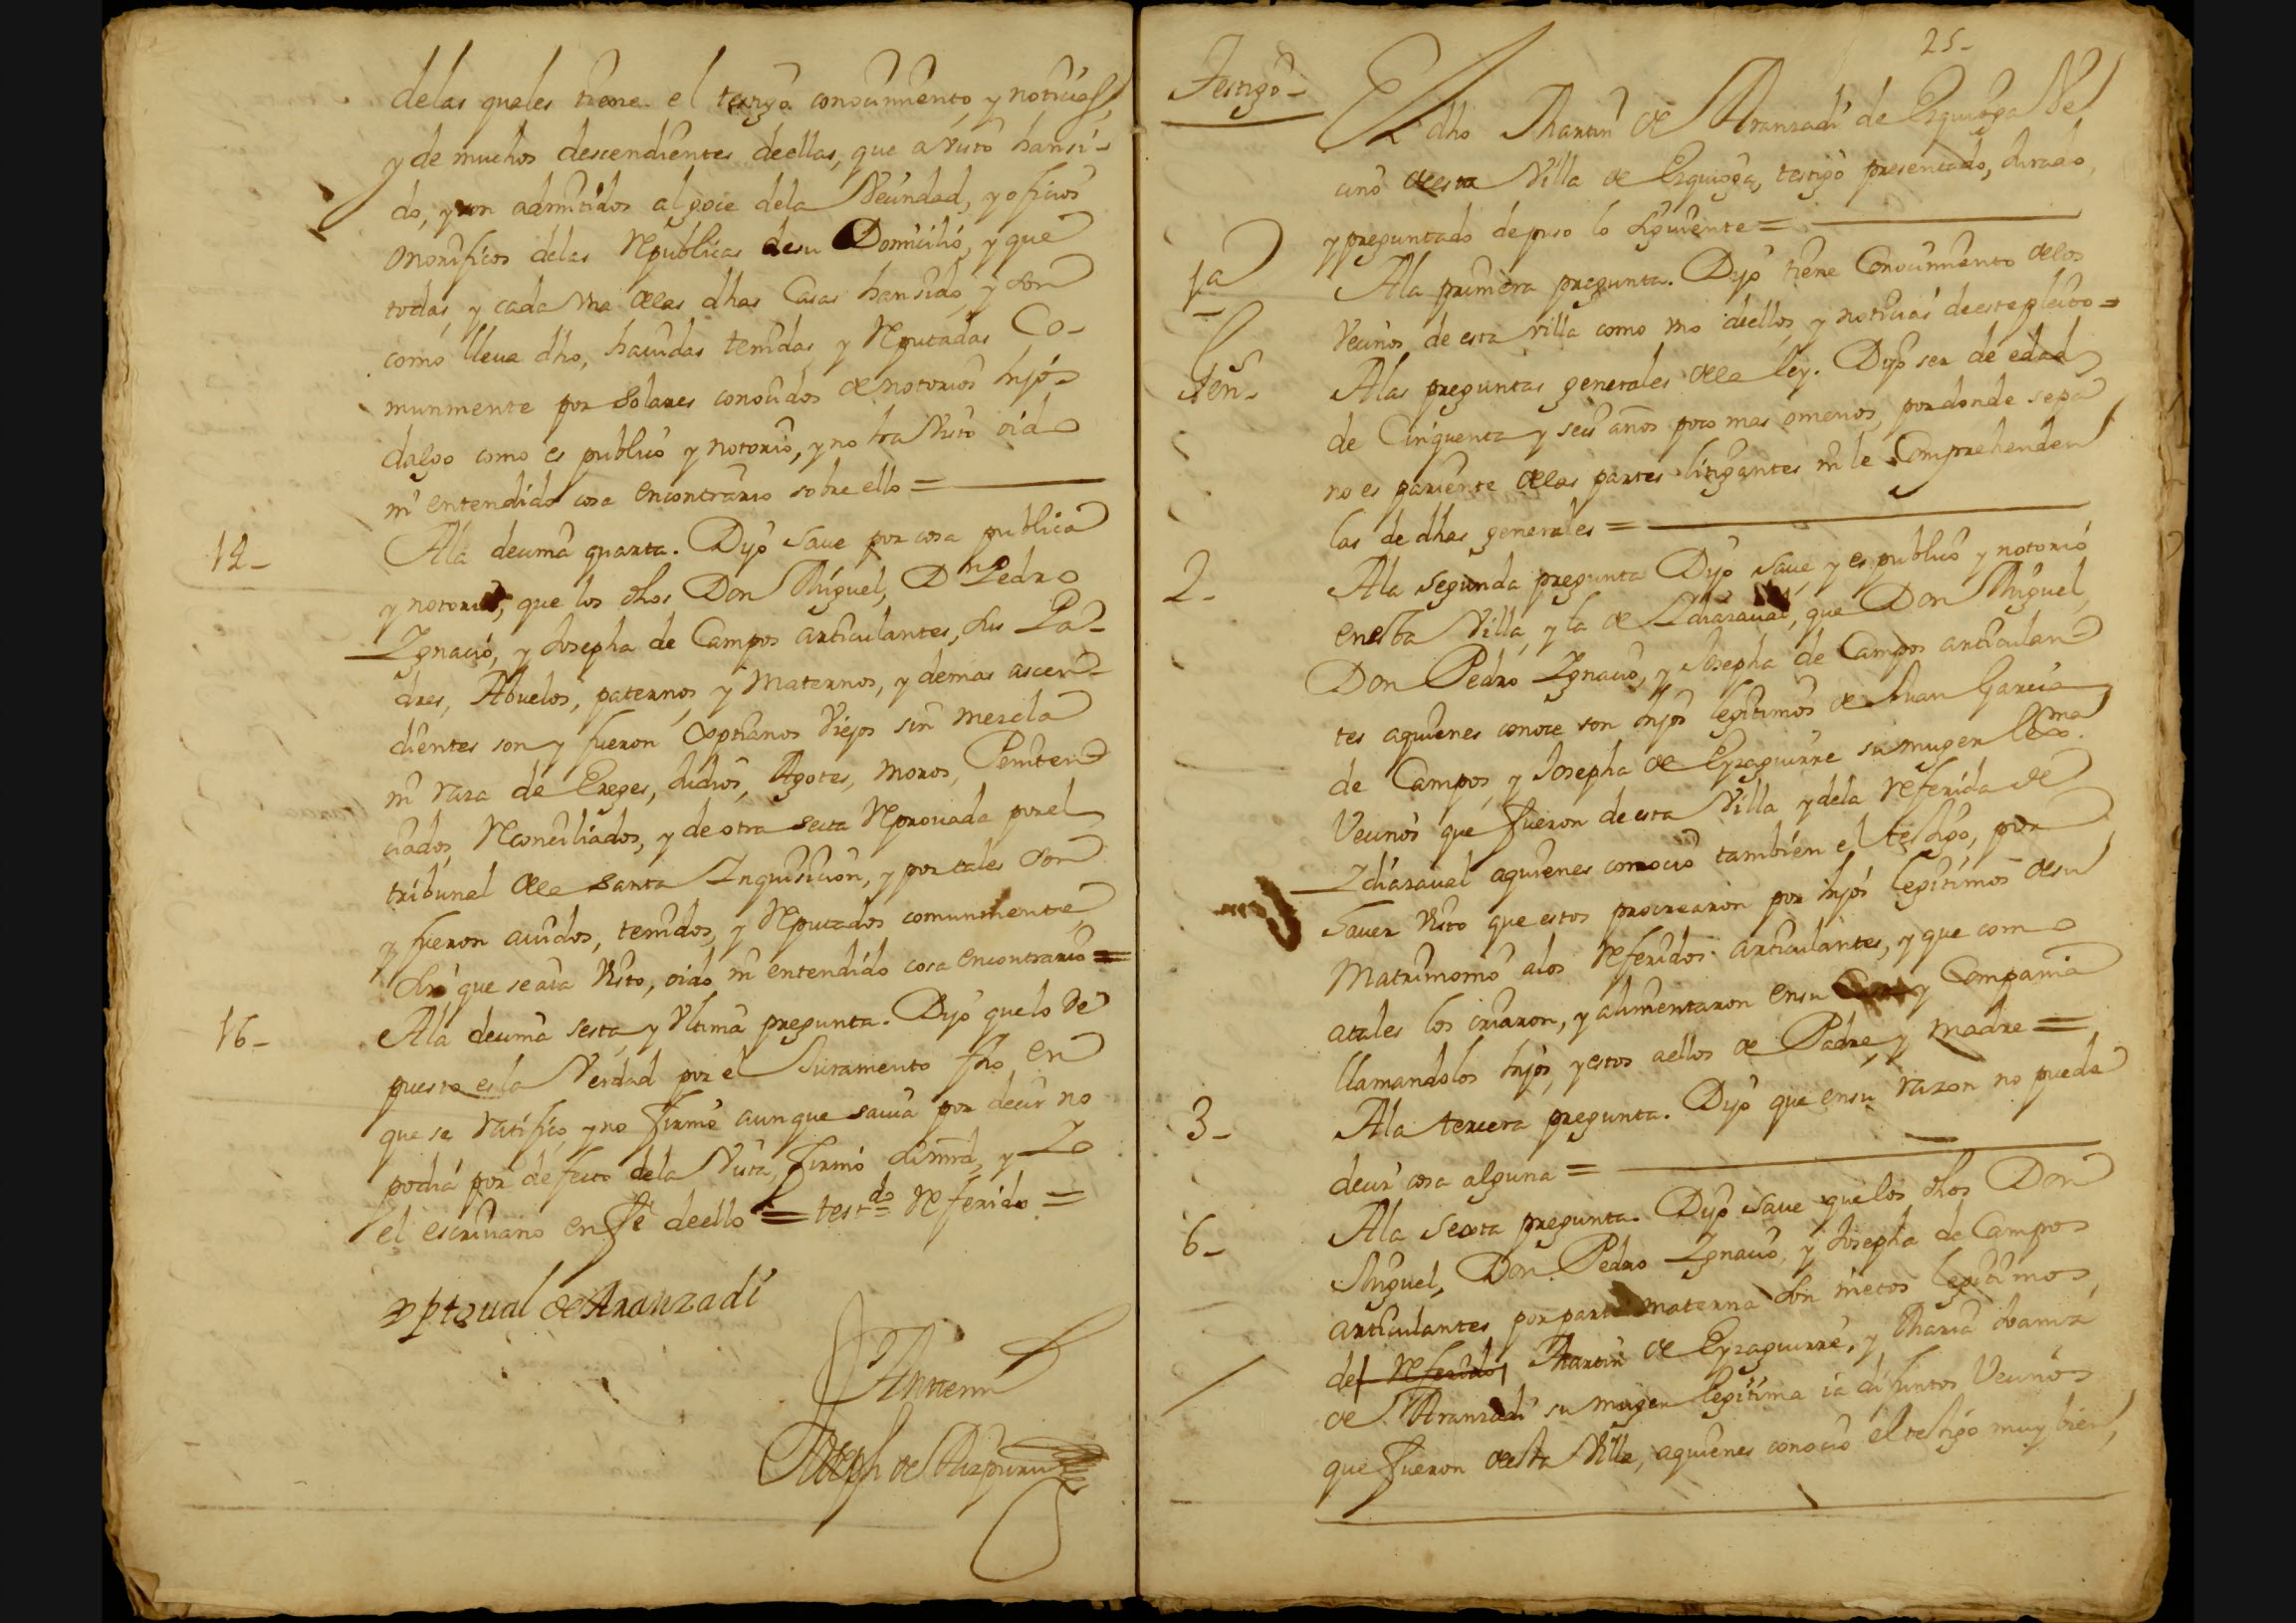 delas quales tiene el testigo conocimiento, y noticias,
y de muchos descendientes deellas, que a visto hansi-
do, y son admitidos algoce dela Vecindad, y oficios
onorificos delas Republicas desu Domicilio, y que
todas, y cada una delas dhas Casas hansido, y son
como lleva dho, havidas tenidas, y Reputadas Co-
munmente por Solares conocidos de notorios hijos
dalgo como es publico y notorio, y no ha visto oido
ni entendido cosa encontrario sobre ello =
14-
Ala decima quarta. Dijo save por cosa publica
y notoria, que los dhos Don Miguel, Dn Pedro
Ignacio, y Josepha de Campos articulantes, sus Pa-
dres, Abuelos, paternos, y Maternos, y demas ascen-
dientes son y fueron Xptianos Viejos sin mezcla
ni raza de Ereges, Judios, Agotes, moros, Peniten-
ciados, Reconciliados, y de otra secta Reprovada porel
tribunal dela Santa Inquisicion, y por tales son
y fueron avidos, tenidos, y Reputados comunmente,
sin que se aia visto, oido, ni entendido cosa encontrario =
16-
Ala decima sesta, y ultima pregunta. Dijo quelo de
puesto es la Verdad por el Juramento fho, en
que se ratifico, y no firmo aunque savia por decir no
podia por defecto dela vista, firmo su mrd, y Yo
el escrivano en fe deello = testdo Referido =
Xptoual de Aranzadi
Antemi
Joseph de Aizpuru
25-
Testigo-
El dho Martin de Aranzadi de Ezquioga Ve
cino desta Villa de Ezquioga, testigo presentado, Jurado,
y preguntado depuso lo siguiente =
1a
Ala primera pregunta. Dijo tiene Conocimiento delos
Vecinos de esta villa como uno deellos, y noticias deestepleito =
Gen-
Alas preguntas generales dela ley. Dijo ser de edad
de Cinquenta y seis años poco mas omenos, pordonde sepa
no es pariente delas partes litigantes ni le Comprehenden
las de dhas generales =
2-
Ala segunda pregunta Dijo save, y es publico y notorio
enesta Villa, y la de Ichasaval, que Don Miguel,
Don Pedro Ignacio, y Josepha de Campos articulan
tes aquienes conoce son hijos legitimos de Juan Garcia
de Campos, y Josepha de Eyzaguirre su muger lexma.
Vecinos que fueron de esta Villa y dela referida de
Ichasaval aquienes conocio tambien el testigo, por
Saver visto que estos procrearon por hijos legitimos desu
Matrimonio alos Referidos articulantes, y que como
atales los criaron, y alimentaron ensu Casa y Compania
llamandolos hijos, y estos aellos de Padre, y madre =
3-
Ala tercera pregunta. Dijo que ensu razon no puede
decir cosa alguna =
6-
Ala Sexta pregunta. Dijo save quelos dhos Don
Miguel, Don Pedro Ignacio, y Josepha de Campos
articulantes por parte materna son nietos legitimos,
del Referido, Martin de Eyzaguirre, y Maria Joaniz
de Aranzadi su muger legitima ia difuntos Vecinos
que fueron desta Villa, aquienes conocio el testigo muy bien,